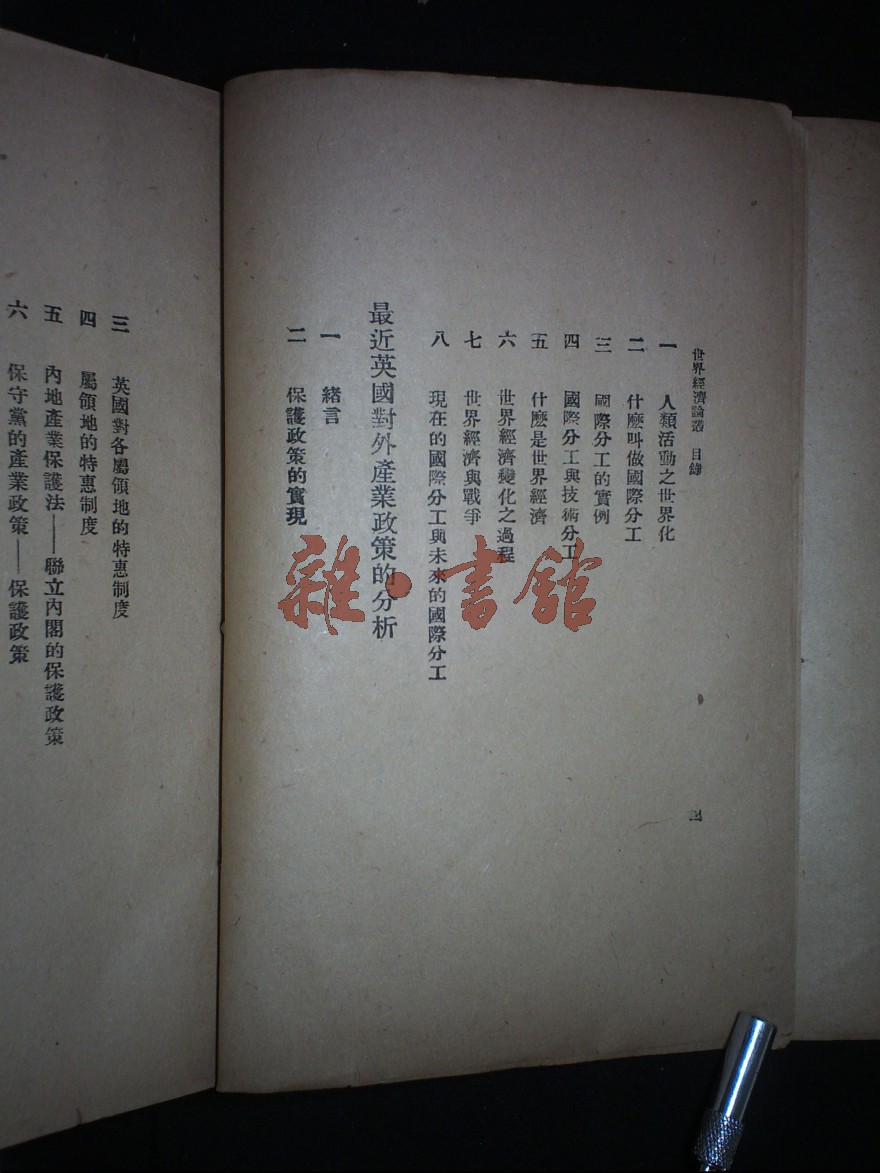 世界經濟論叢 目錄
一 人類活動之世界化
二 什麽叫做國際分工
三 國際分工的實例
四 國際分工與技術分工
五 什麽是世界經濟
六 世界經濟變化之過程
七 世界經濟與戰爭
八 現在的國際分工與未來的國際分工
最近英國對外產業政策的分析
一 緒言
二 保護政策的實現
三 英國對各屬領地的特惠制度
四 屬領地的特惠制度
五 內地產業保護法——聯立內閣的保護政策
六 保守黨的產業政策——保護政策
雜·書館